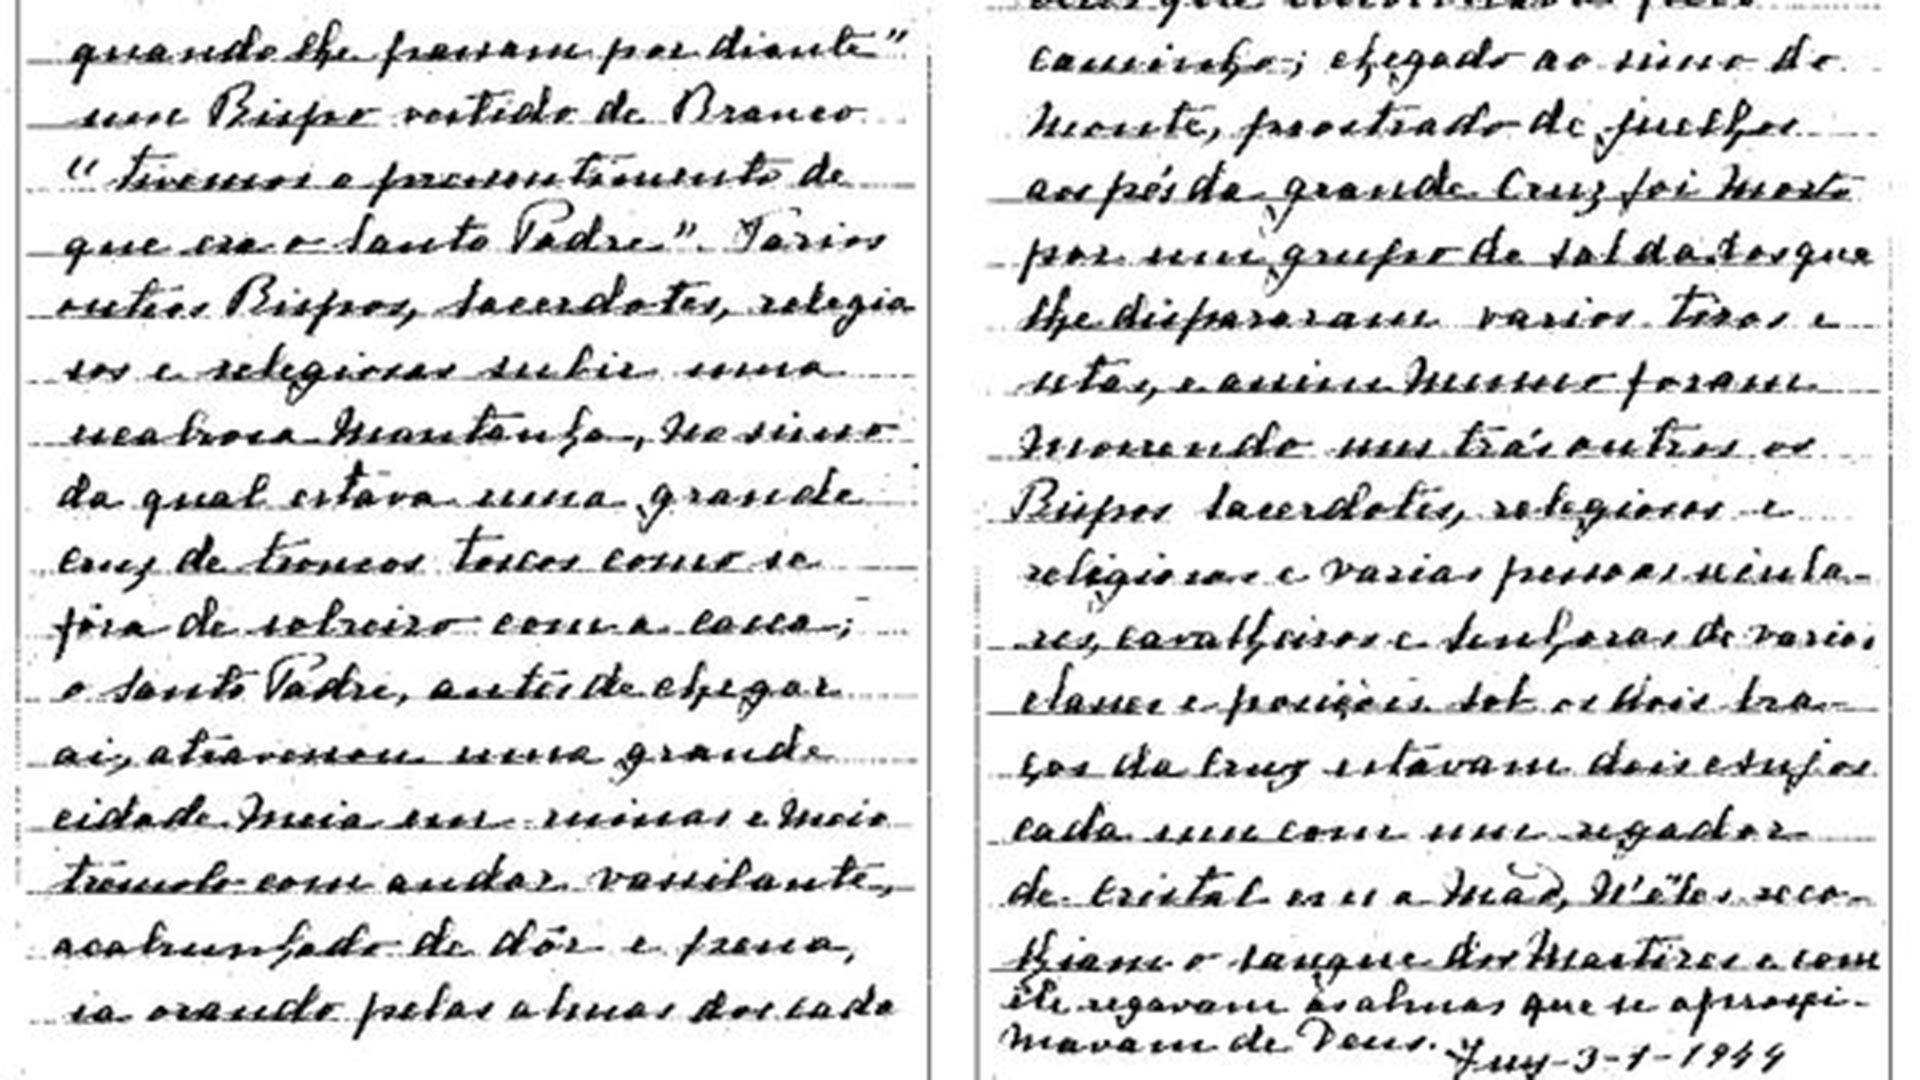 quando lhe passam por diante"
um Bispo vestido de Branco
"tivemos o pressentimento de
que era o Santo Padre". Varios
outros Bispos, sacerdotes, relegio
sos e relegiosas subir uma
escabrosa montanha, no simo
da qual estava uma grande
cruz de troncos toscos como se
fôra de sobreiro com a casca;
o Santo Padre, antes de chegar
ai, atravessou uma grande
cidade meia em ruinas e meio
trémulo com andar vassilante,
acabrunhado de dôr e pena,
ia orando pelas almas dos cada
caminho; chegado ao simo do
monte, prostrado de juelhos
aos pés da grande Cruz foi morto
por um grupo de soldados que
lhe dispararam varios tiros e
setas, e assim mesmo foram
morrendo uns trás outros os
Bispos Sacerdotes, relegiosos e
relegiosas e varias pessoas secula-
res, cavalheiros e senhoras de varias
classes e posições. Sob os dois bra-
ços da Cruz estavam dois Anjos
cada um com um regador
de cristal em a mão, N'êles reco-
lhiam o sangue dos Martires e com
êle regavam as almas que se aproxi-
mavam de Deus.
Tuy-3-1-1944